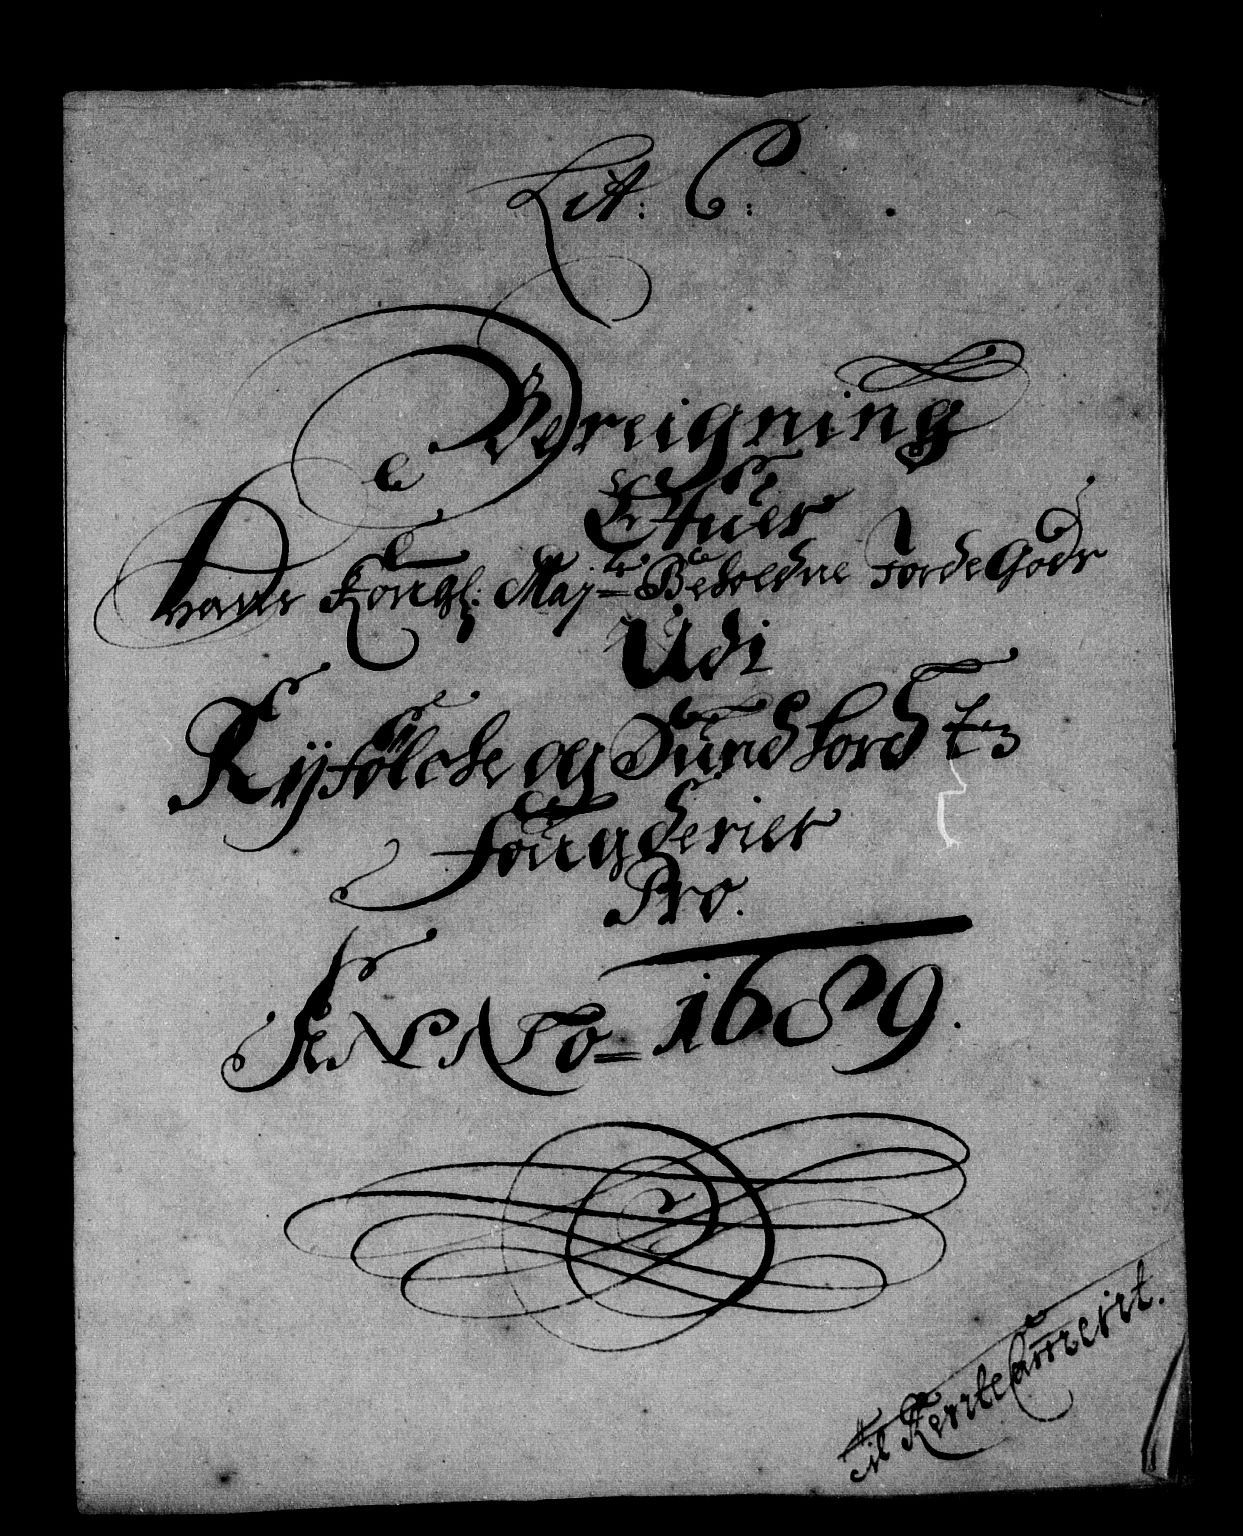 Lit: C:
Bereigning
Efter
hans Kongl: Maj:ts Beholdne JordeGods
Udi
Ryfölche og Sundhordlens
fougderier
Pro.
ANNO= 1689.
Til Rentecammerit.